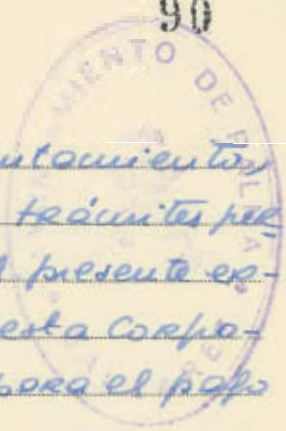 90
MIENTO DE
untamientos
trámites pre
l presente ex-
esta Corpo-
para el pago